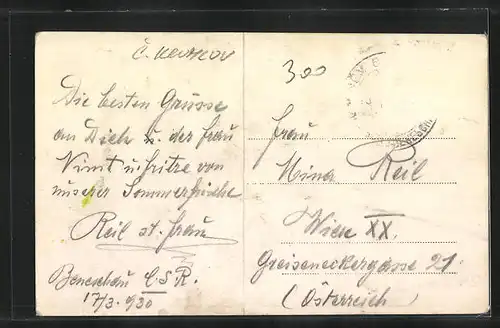 300
Die besten Grüsse
an Dich u. der Frau
von
unserer Sommerfrische
Reil st. Frau
Beneschau Č.S.R.
17/3. 930
Frau
Mina Reil
Wien XX.
Greiseneckergasse 21
(Österreich)